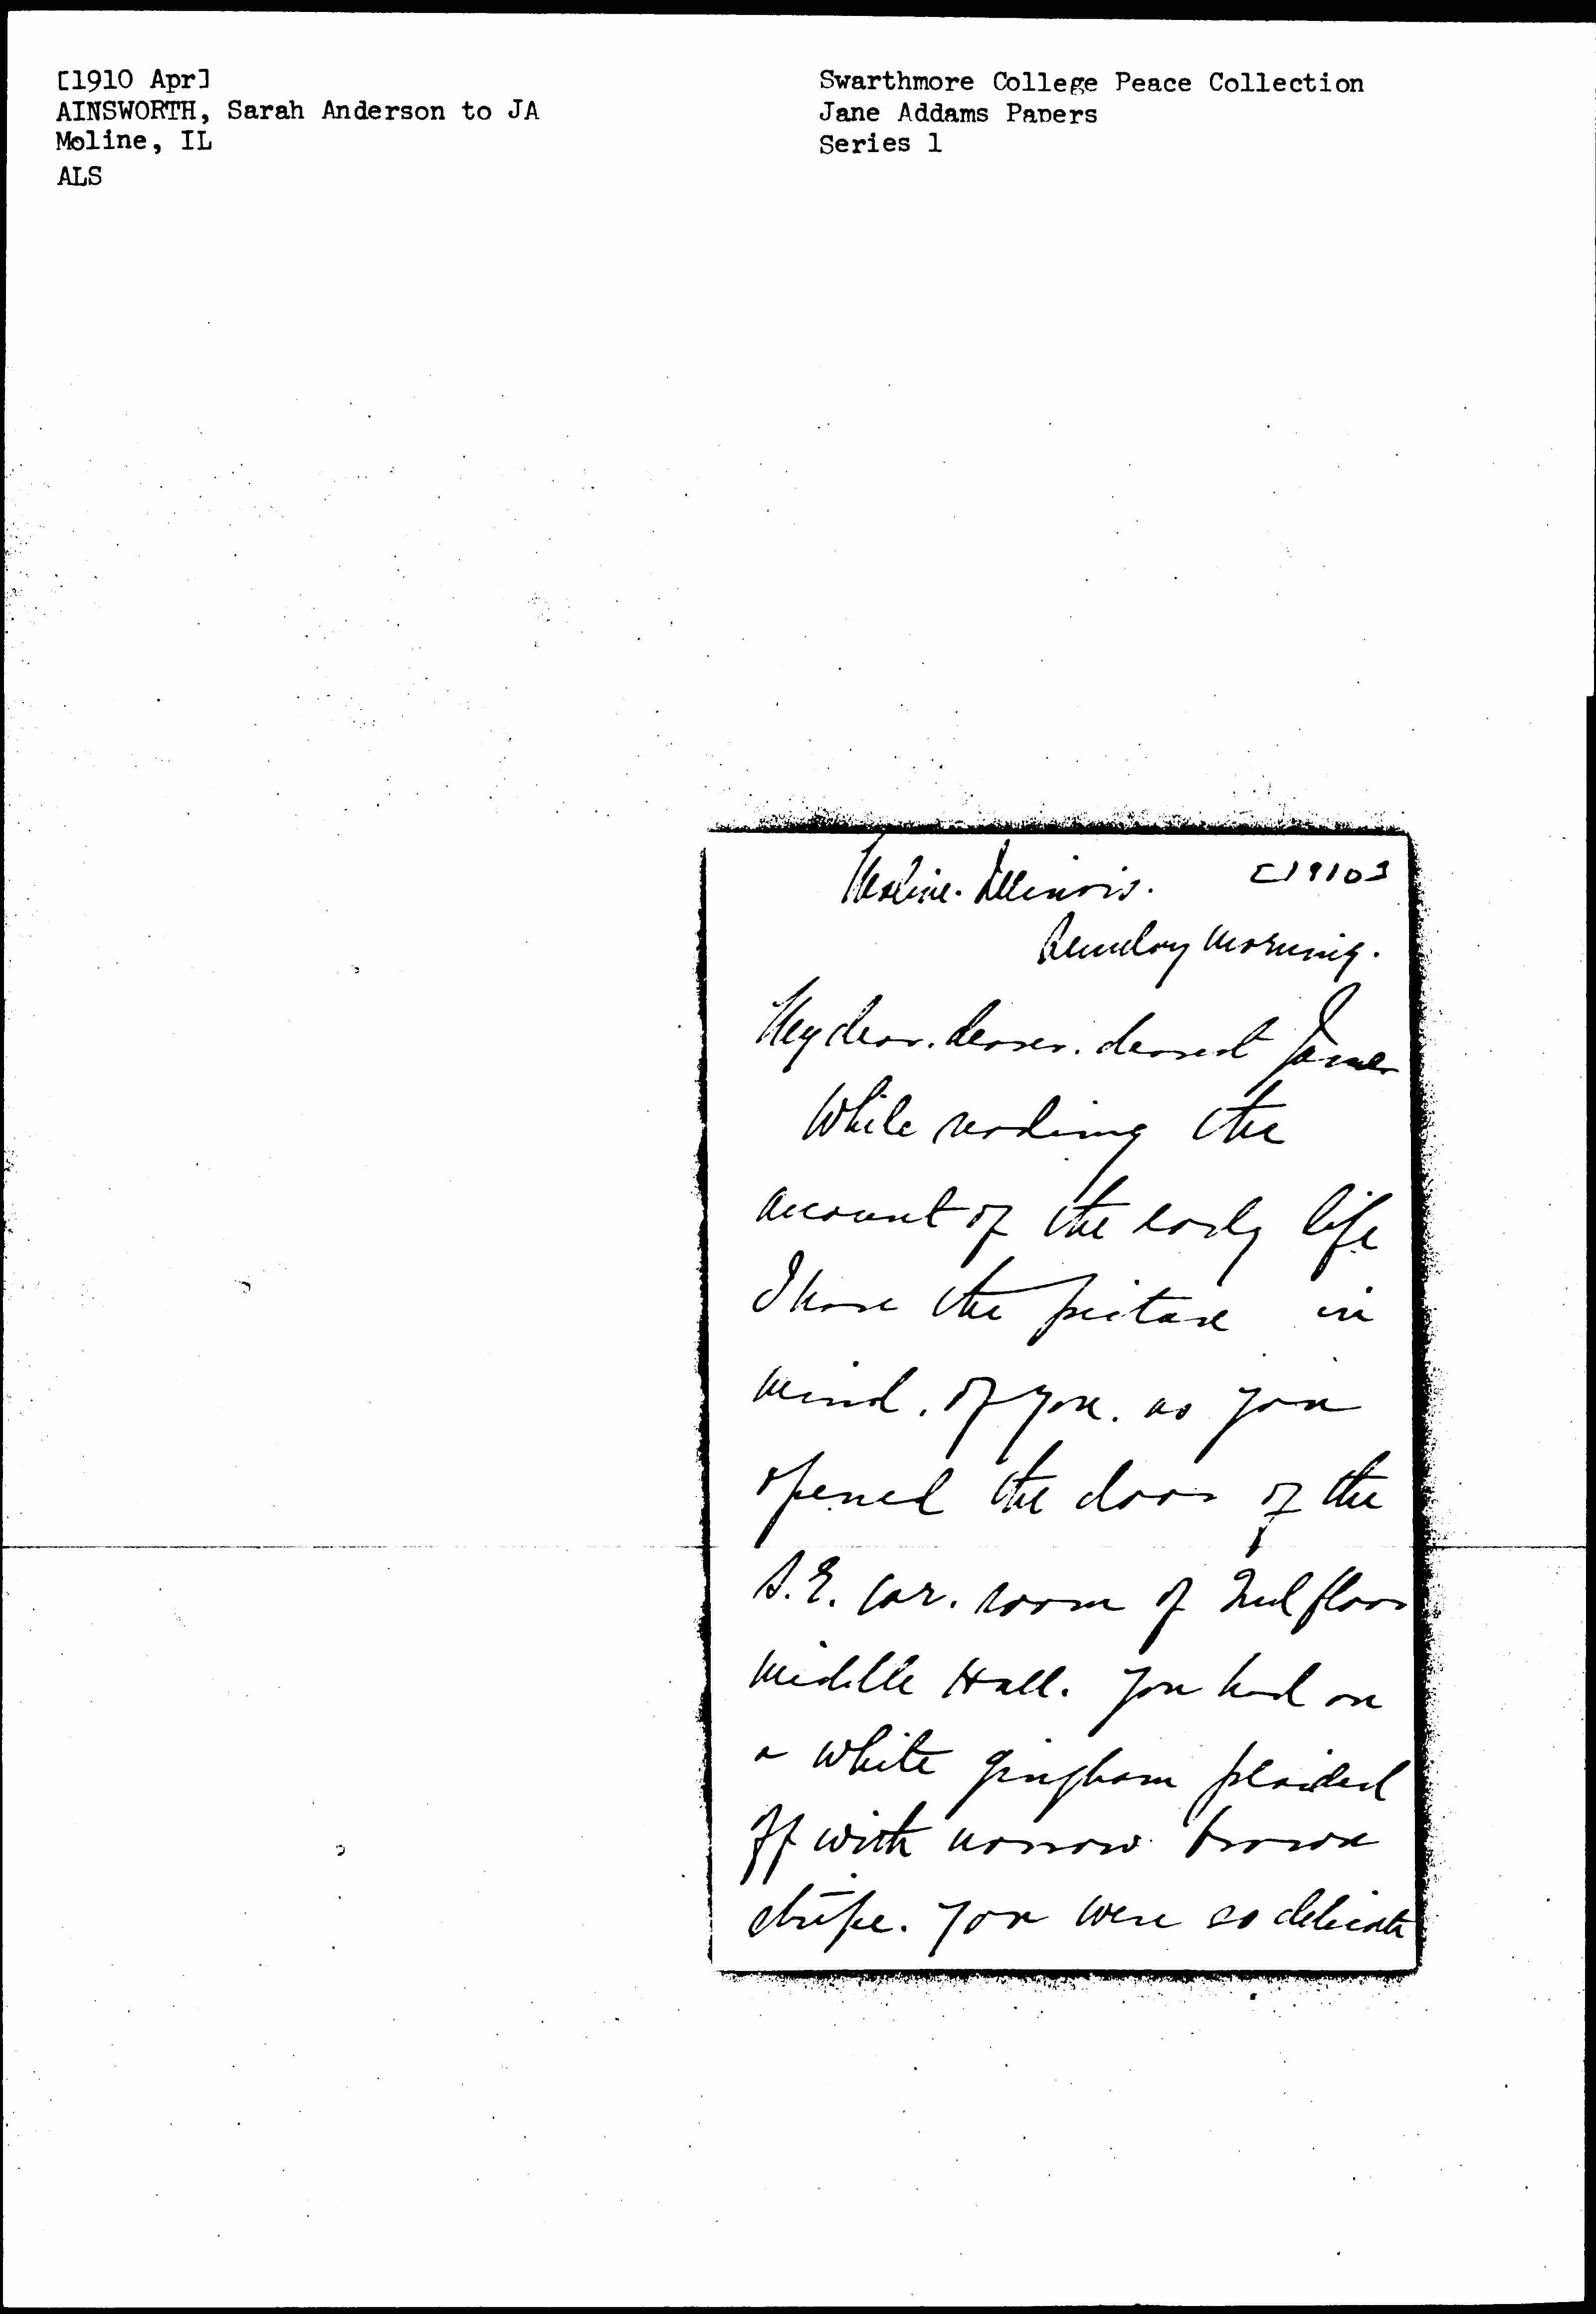 [1910 Apr]
AINSWORTH, Sarah Anderson to JA
Moline, IL
ALS
Swarthmore College Peace Collection
Jane Addams Papers
Series 1
Moline. Illinois. [1910]
Sunday morning.
My dear. dearer. dearest Jane
While reading the
account of the early life
I have the picture in
mind. of you. as you
opened the door of the
S.E. cor. room of 2nd floor
middle Hall. You had on
a white gingham plaided
off with narrow brown
stripe. You were so delicate